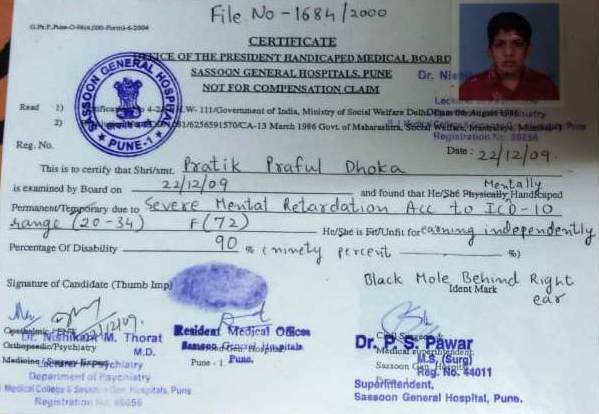 File No - 1684/2000
CERTIFICATE
OFFICE OF THE PRESIDENT HANDICAPED MEDICAL BOARD
SASSOON GENERAL HOSPITALS, PUNE
NOT FOR COMPENSATION CLAIM
SASSOON GENERAL HOSPITAL
PUNE-1
Read 1) 4-2 W- 111/Government of India, Ministry of Social Welfare Delhi August 1986
2) 81/6256591570/CA-13 March 1986 Govt. of Maharashtra, Social Welfare, Mantralaya, Mumbai
Reg. No.
Date : 22/12/09.
This is to certify that Shri/smt. Pratik Praful Dhoka
is examined by Board on 22/12/09 and found that He/She Physically Mentally Handicaped
Permanent/Temporary due to Severe Mental Retardation Acc to ICD-10
range (20-34) F(72) He/She is Fit/Unfit for earning independently
Percentage Of Disability 90 % (ninety percent %)
Signature of Candidate (Thumb Imp)
Black Mole Behind Right ear
Ident Mark
Dr. Nishikant M. Thorat
M.D.
Lecturer in Psychiatry
Department of Psychiatry
Medical College & Sassoon Gen. Hospitals, Pune
Resident Medical Officer
Sassoon General Hospitals
Pune - 1. Pune.
Dr. P. S. Pawar
M.S. (Surg)
Reg. No. 44011
Superintendent,
Sassoon General Hospital, Pune.